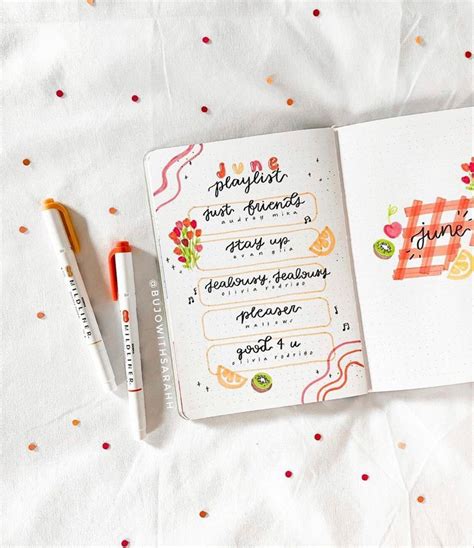 June
playlist
just friends
audrey mika
stay up
evan giia
jealousy, jealousy
olivia rodrigo
pleaser
wallows
good 4 u
olivia rodrigo
june
MILDLINER
MILDLINER
@BUJOWITHSARAHH